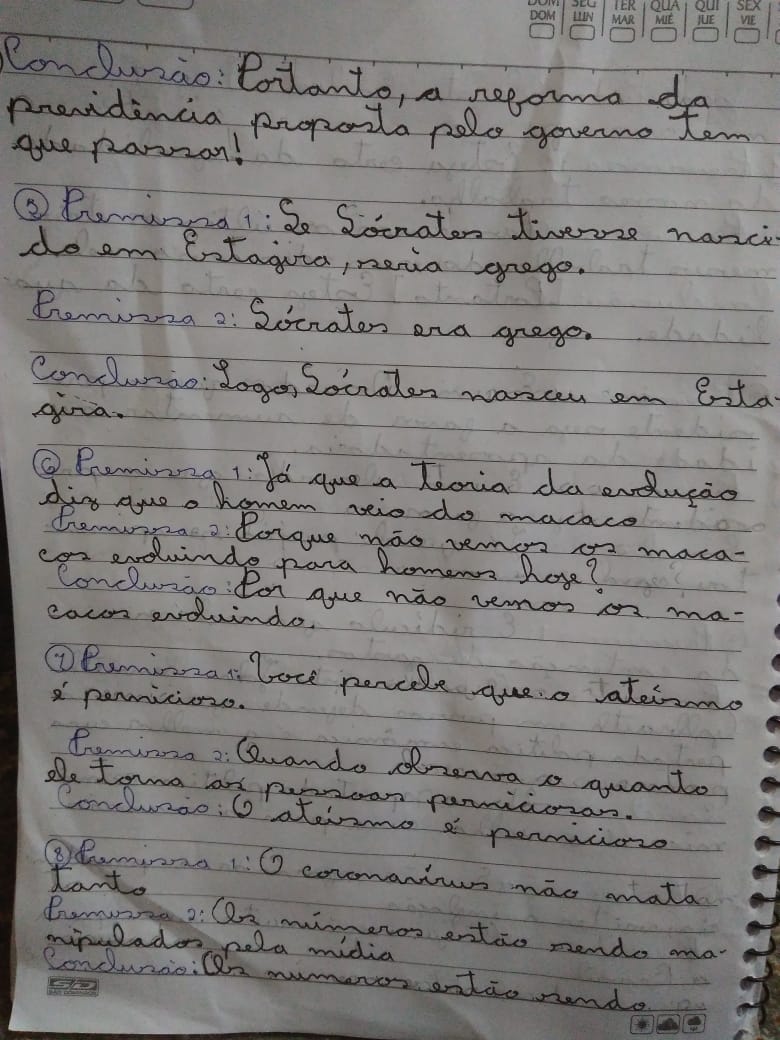 DOM SEG TER QUA QUI SEX
DOM LUN MAR MIÉ JUE VIE
Conclusão: Portanto, a reforma da
previdência proposta pelo governo tem
que passar!
⑤ Premissa 1: Se Sócrates tivesse nasci-
do em Estagira, seria grego.
Premissa 2: Sócrates era grego.
Conclusão: Logo, Sócrates nasceu em Esta-
gira.
⑥ Premissa 1: Já que a Teoria da evolução
diz que o homem veio do macaco
Premissa 2: Porque não vemos os maca-
cos evoluindo para homens hoje?
Conclusão: Por que não vemos os ma-
cacos evoluindo.
⑦ Premissa 1: Você percebe que o ateísmo
é pernicioso.
Premissa 2: Quando observa o quanto
ele torna as pessoas perniciosas.
Conclusão: O ateísmo é pernicioso
⑧ Premissa 1: O coronavírus não mata
tanto
Premissa 2: Os números estão sendo ma-
nipulados pela mídia
Conclusão: Os numeros estão sendo